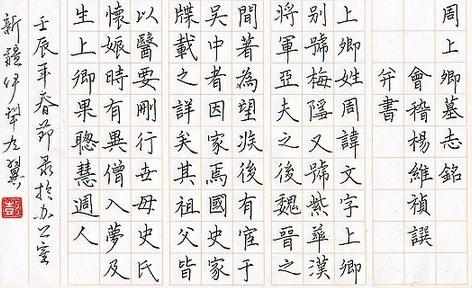 周上卿墓志銘
會稽楊維禎譔
并書
上卿姓周諱文字上卿
别號梅隱又號紫華漢
將軍亞夫之後魏晉之
間著為望族後有宦于
吳中者因家焉國史家
牒載之詳矣其祖父皆
以醫要剛行世母史氏
懷娠時有異僧入夢及
生上卿果聰慧週人
壬辰年春節录於办公室
新疆伊犂左翼
彭